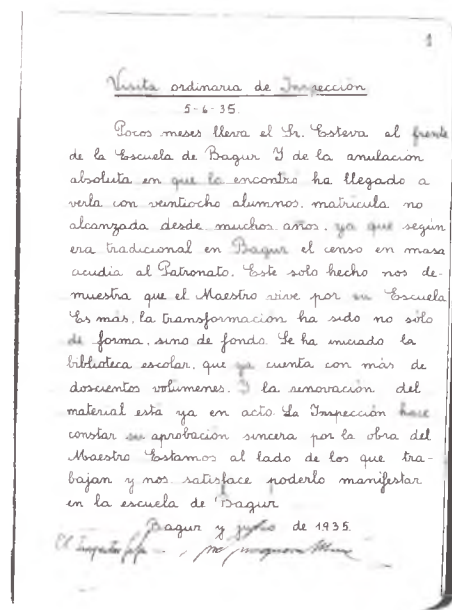 1
Visita ordinaria de Inspección
5-6-35.
Pocos meses lleva el Sr. Esteva al frente
de la Escuela de Bagur Y de la anulación
absoluta en que la encontró ha llegado a
verla con veintiocho alumnos, matrícula no
alcanzada desde muchos años, ya que según
era tradicional en Bagur el censo en masa
acudía al Patronato. Este solo hecho nos de-
muestra que el Maestro vive por su Escuela
Es más, la transformación ha sido no sólo
de forma, sino de fondo. Se ha iniciado la
biblioteca escolar, que ya cuenta con más de
doscientos volúmenes. Y la renovación del
material está ya en acto La Inspección hace
constar su aprobación sincera por la obra del
Maestro Estamos al lado de los que tra-
bajan y nos satisface poderlo manifestar
en la escuela de Bagur
Bagur y de 1935.
El Inspector Jefe